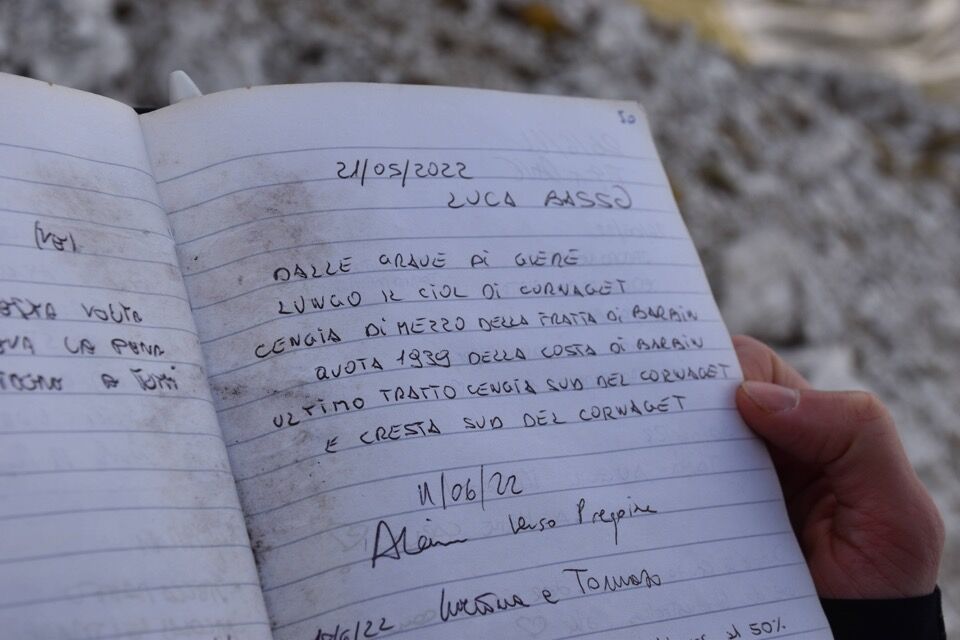 VOLTA
LA PENA
50
21/05/2022
LUCA BASSO
DALLE GRAVE DI GIERE
LUNGO IL CIOL DI CORNAGET
CENGIA DI MEZZO DELLA FRATTA DI BARBIN
QUOTA 1939 DELLA COSTA DI BARBIN
ULTIMO TRATTO CENGIA SUD DEL CORNAGET
E CRESTA SUD DEL CORNAGET
11/06/22
verso
e Tommaso
al 50%